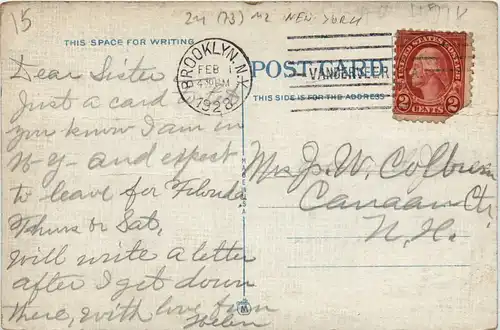 15
24 (73) M2 NEW YORK
THIS SPACE FOR WRITING
POST CARD
THIS SIDE IS FOR THE ADDRESS
BROOKLYN, N.Y.
FEB 1
4 PM
1928
VANDERVEER
UNITED STATES POSTAGE
2 CENTS 2
MADE IN U.S.A.
Dear Sister
Just a card
you know I am in
N-Y- and expect
to leave for Florida
Thurs or Sat,
will write a letter
after I get down
there, with love from
Helen
Mrs J. W. Colburn
Canaan Ctr
N. H.